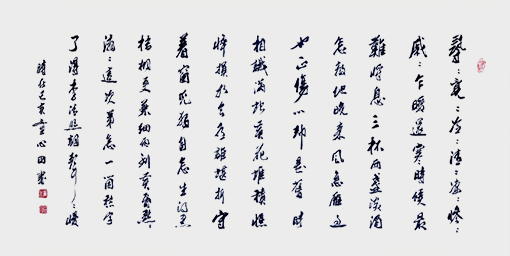 尋〻覓〻冷〻清〻凄〻惨〻
戚〻乍暖還寒時候最
難將息三杯兩盞淡酒
怎敵他晚來風急雁過
也正傷心卻是舊時
相識滿地黃花堆積憔
悴損如今有誰堪摘守
着窗兒獨自怎生得黑
梧桐更兼細雨到黃昏點〻
滴〻這次第怎一個愁字
了得李清照詞聲〻慢
時在